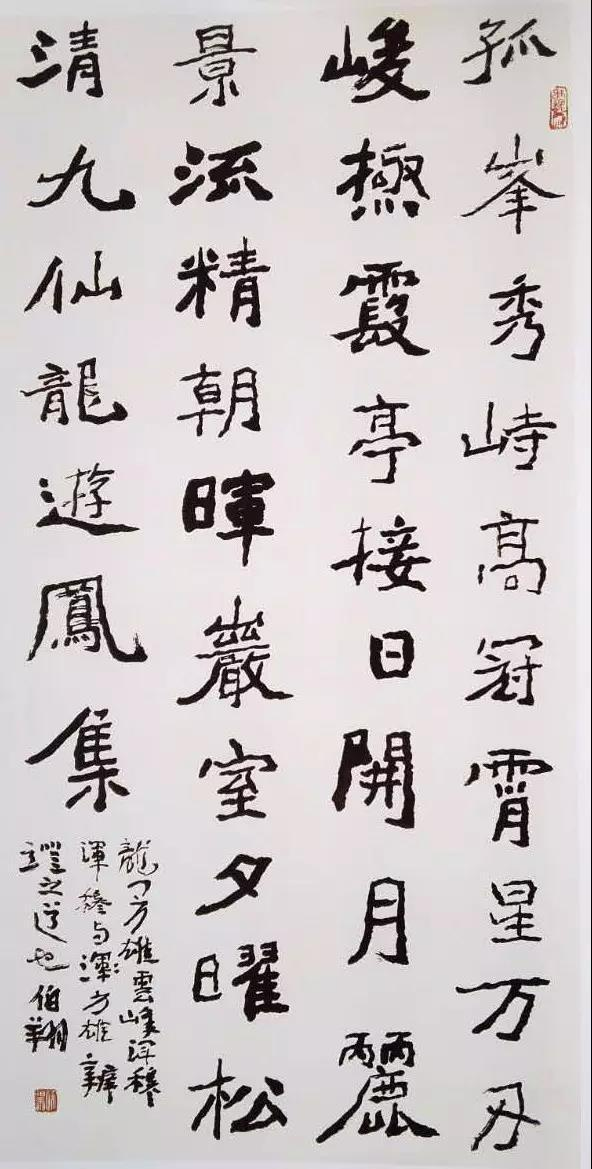 孤峯秀峙高冠霄星万刃
峻極霞亭接日開月麗
景流精朝暉巖室夕曜松
清九仙龍遊鳳集
龍门方雄雲峰渾穆
渾穆与方雄
之也伯翔